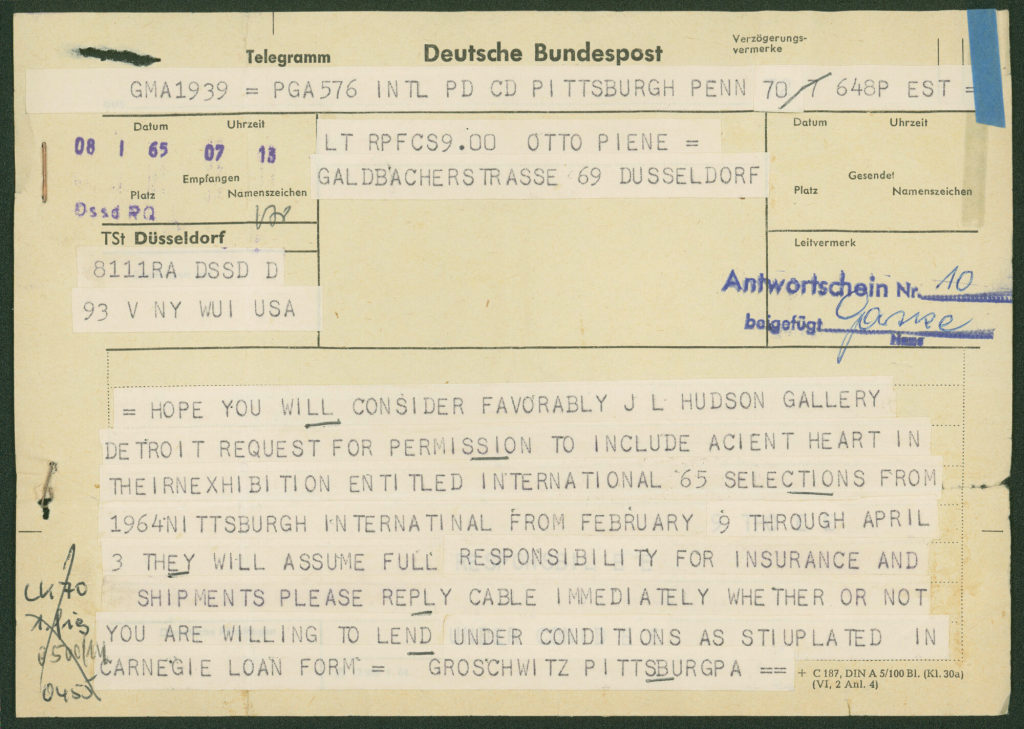 Telegramm Deutsche Bundespost Verzögerungs-
vermerke
GMA1939 = PGA576 INTL PD CD PITTSBURGH PENN 70/7 648P EST =
Datum Uhrzeit
08 I 65 07 13
Empfangen
Platz Namenszeichen
Dssd RQ
TSt Düsseldorf
8111RA DSSD D
93 V NY WUI USA
LT RPFCS9.00 OTTO PIENE =
GALDBACHERSTRASSE 69 DUSSELDORF
Datum Uhrzeit
Gesendet
Platz Namenszeichen
Leitvermerk
Antwortschein Nr. 10
beigefügt
Name
= HOPE YOU WILL CONSIDER FAVORABLY J L HUDSON GALLERY
DETROIT REQUEST FOR PERMISSION TO INCLUDE ACIENT HEART IN
THEIRNEXHIBITION ENTITLED INTERNATIONAL '65 SELECTIONS FROM
1964NITTSBURGH INTERNATINAL FROM FEBRUARY 9 THROUGH APRIL
3 THEY WILL ASSUME FULL RESPONSIBILITY FOR INSURANCE AND
SHIPMENTS PLEASE REPLY CABLE IMMEDIATELY WHETHER OR NOT
YOU ARE WILLING TO LEND UNDER CONDITIONS AS STIUPLATED IN
CARNEGIE LOAN FORM = GROSCHWITZ PITTSBURGPA ==
+ C 187, DIN A 5/100 Bl. (Kl. 30a)
(VI, 2 Anl. 4)